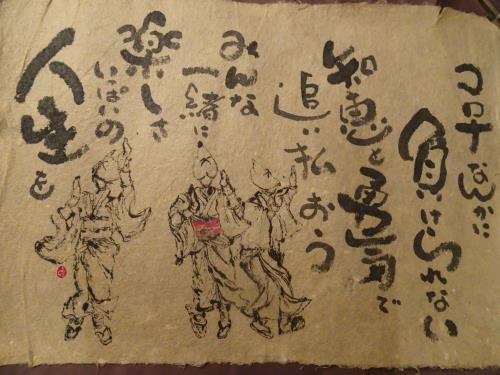 コロナなんかに
負けられない
知恵と勇気で
追い払おう
みんな
一緒に
楽しさ
いっぱいの
人生を